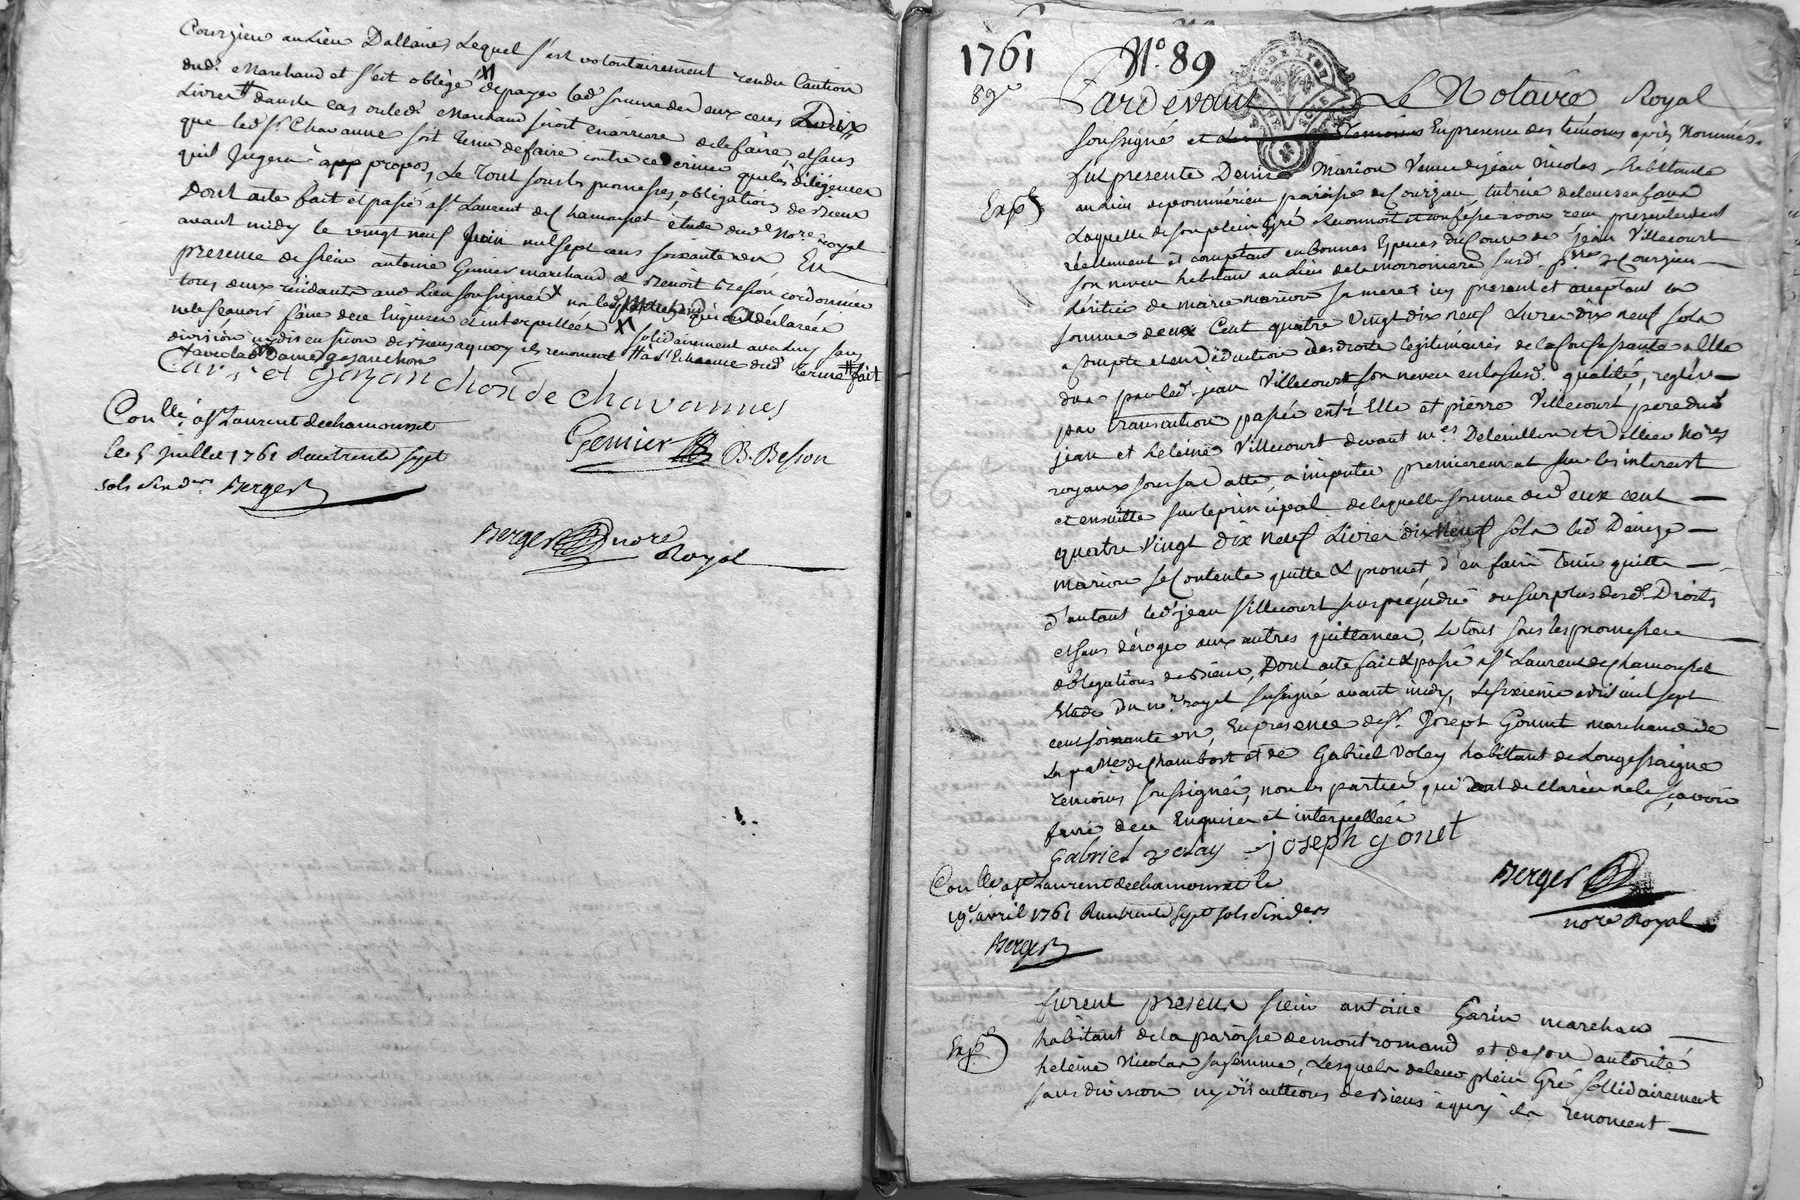 Courzieu au Lieu Dallaines Lequel s'est volontairement rendu Caution
dud. Marchand et s'est obligé de payer lad somme de deux cens
Livres dans le cas ou led. Marchand seroit en arriere de le faire, et sans
que led sr. Chavanne soit tenu de faire contre ce dernier que les diligences
quil Jugera app propos, Le Tout sous les promesses, obligations de Biens
Dont acte fait et passé a st. Laurent de Chamousset étude dud. Nore. Royal
avant midy le vingt neuf Juin mil sept cens soixante un En
presence de sieur antoine Gemier marchand et Benoit Besson cordonnier
tous deux résidants aud. Lieu soussignés non led. Marchand qui a déclaré
ne le sçavoir faire de ce Enquis et interpellée X solidairement avec luy sans
division ny discussion de Biens a quoy ils renoncent # a l'Echeance dud. terme # fait
avec lad. Dame gazanchon
Gazanchon de chavannes
Conllé. à st Laurent de chamousset
le 5 juillet 1761 Reçu trente sept
sols six drs. Berger
Gemier B. Besson
Berger nore
Royal
1761 No. 89
89e
Pardevant Le Notaire Royal
soussigné et En presence des témoins après Nommés
fut presente Denise Marion Veuve de jean Nicolas, habitante
Exp.
au Lieu de pomérieu paroisse de Courzieu tutrice de leurs enfans
Laquelle de son plein Gré Reconnoit et confesse avoir reçu presentement
réellement et comptant en bonnes Especes du Cours de jean Villecourt
son neveu habitant au Lieu de la morroniere susd. psse. de Courzieu
héritier de marie marion sa mere icy present et aceptant la
somme de deux Cent quatre Vingt dix neuf Livres dix neuf sols
a Compte et en déduction des droits legitimaires de la Confessante a Elle
dus par led. jean Villecourt son neveu en la susd. qualité, reglés
par transaction passée entre Elle et pierre Villecourt pere dud
jean et heleine Villecourt devant mes. Deleullion et Nores
royaux sous sa datte, a imputer premierement sur les interest
et ensuitte sur le principal de laquelle somme de deux cent
quatre Vingt dix Neuf Livres dix Neuf sols lad Denize
marion se Contente quitte & promet d'en faire tenir quitte
d'autant led. jean Villecourt sans prejudice du surplus desd. Droits
et sans déroger aux autres quittances, Le tout sous les promesses
obligations de Biens, Dont acte fait & passé a st. Laurent de chamousset
Etude Du nre. royal soussigné avant midy, Le sixieme avril mil sept
cent soixante un, En presence de sr. Joseph Gonnet marchand de
La psse. de chambost et de Gabriel Volay habittant de Longessaigne
temoins soussignés, non les parties qui ont declarées ne le sçavoir
faire de ce Enquises et interpellées
Gabriel volay joseph gonet
Conllé. a st Laurent de chamousset le
19e. avril 1761 Reçu trente sept sols six ders
Berger
Berger
nore Royal
furent presens sieur antoine Garin marchand
Exp.
habitant de la paroisse de montromand et de son autorité
heleine Nicolas sa femme, Lesquels de leur plein Gré sollidairement
sans division ny discutions de Biens à quoy ils renoncent